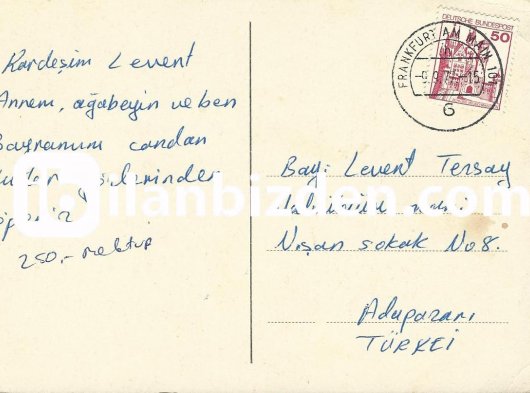 Kardeşim Levent
Annem, ağabeyin ve ben
Bayramını candan
öperiz
250,- mektup
DEUTSCHE BUNDESPOST
50
FRANKFURT AM MAIN
6
Bay: Levent Tersay
Nişan sokak No 8.
Adapazarı
TÜRKEI
ilanbizden.com